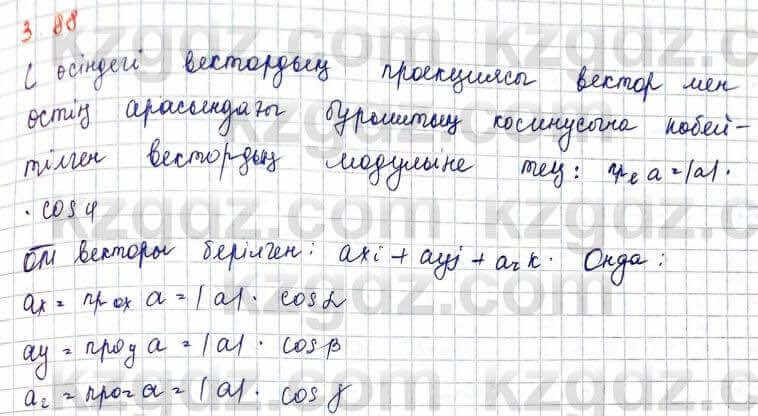 3 88
ℓ осіндегі вектордың проекциясы вектор мен
остің арасындағы бұрыштың косинусына көбей-
тілген вектордың модуліне тең: пр ℓ a = |a| ·
· cos φ
ОМ векторы берілген: axi + ayj + azk. Онда:
ax = пр ox a = |a| · cos α
ay = пр oy a = |a| · cos β
az = пр oz a = |a| · cos γ
kzgdz.com